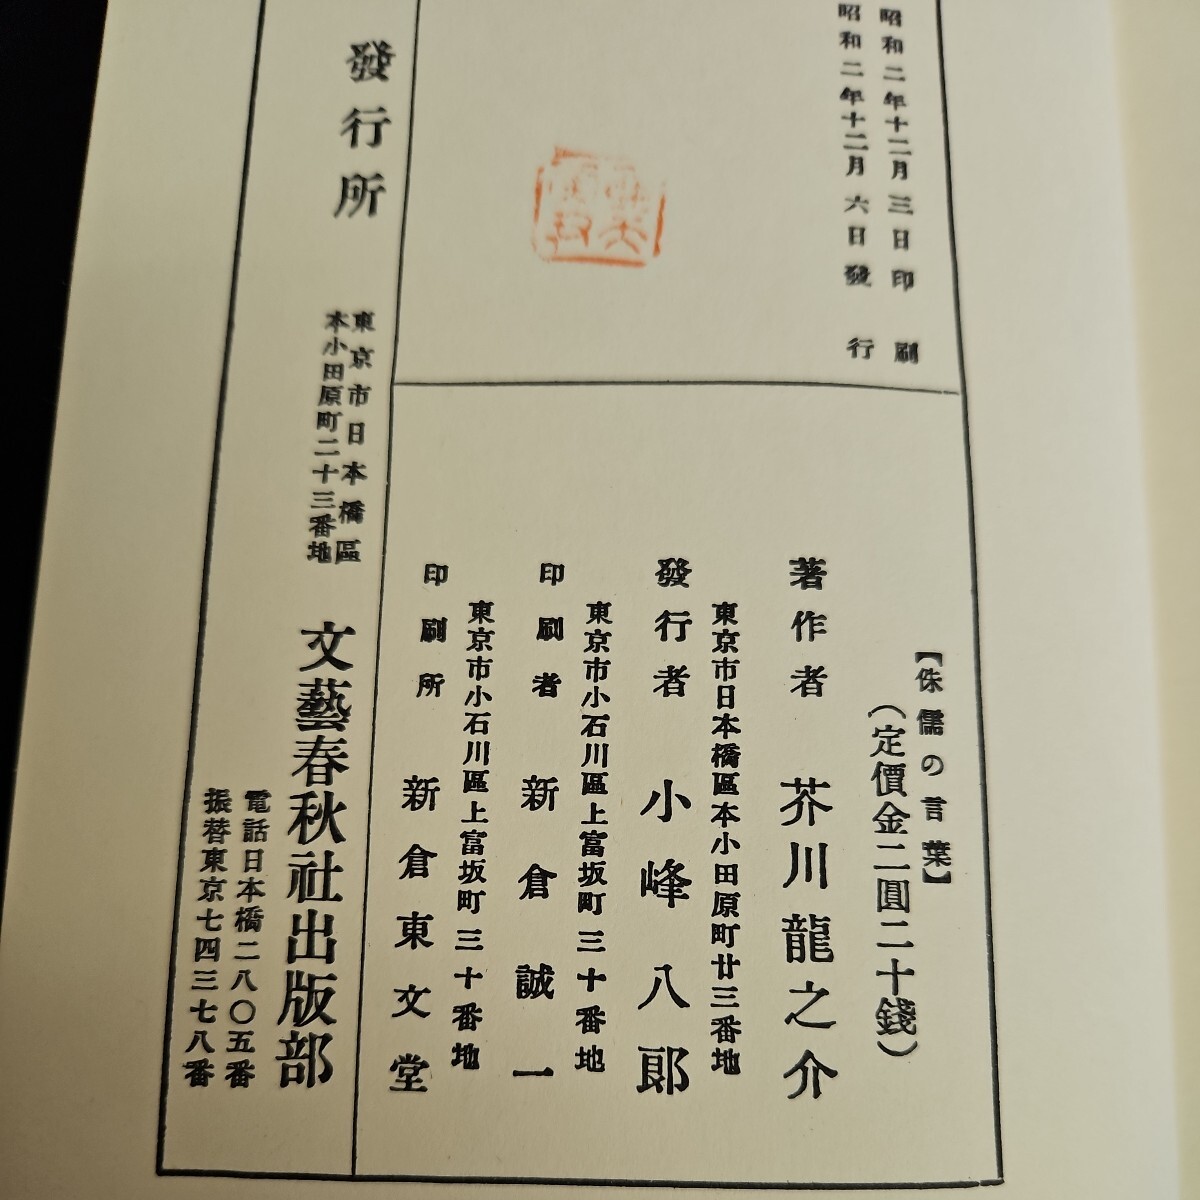 昭和二年十二月三日印刷
昭和二年十二月六日發行
【侏儒の言葉】
(定價金二圓二十錢)
著作者 芥川龍之介
東京市日本橋區本小田原町廿三番地
發行者 小峰八郎
東京市小石川區上富坂町三十番地
印刷者 新倉誠一
東京市小石川區上富坂町三十番地
印刷所 新倉東文堂
發行所
東京市日本橋區
本小田原町二十三番地
文藝春秋社出版部
電話日本橋二八〇五番
振替東京七四三七八番